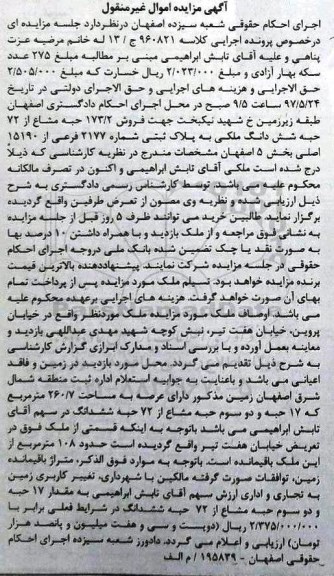 آگهی مزایده اموال غیرمنقول
اجرای احکام حقوقی شعبه سیزده اصفهان درنظردارد جلسه مزایده ای
درخصوص پرونده اجرایی کلاسه ۹۶۰۸۲۱ ج / ۱۳ له خانم مرضیه عزت
پناهی و علیه آقای تابش ابراهیمی مبنی بر مطالبه مبلغ ۲۷۵ عدد
سکه بهار آزادی و مبلغ ۲/۰۲۳/۰۰۰ ریال خسارت که مبلغ ۲/۵۰۵/۰۰۰
حق الاجرایی و هزینه های اجرایی و حق الاجرای دولتی در تاریخ
۹۷/۵/۲۴ ساعت ۹/۵ صبح در محل اجرای احکام دادگستری اصفهان
طبقه زیرزمین خ شهید نیکبخت جهت فروش ۱۷۳/۲ حبه مشاع از ۷۲
حبه شش دانگ ملکی به پلاک ثبتی شماره ۲۱۷۷ فرعی از ۱۵۱۹۰
اصلی بخش ۵ اصفهان مشخصات مندرج در نظریه کارشناسی که ذیلاً
درج شده است ملکی آقای تابش ابراهیمی و اکنون در تصرف مالکانه
محکوم علیه می باشد توسط کارشناس رسمی دادگستری به شرح
ذیل ارزیابی شده و نظریه وی مصون از تعرض طرفین واقع گردیده
برگزار نماید. طالبین خرید می توانند ظرف ۵ روز قبل از جلسه مزایده
به نشانی فوق مراجعه و از ملک بازدید و با همراه داشتن ۱۰ درصد بها
به صورت نقد یا چک تضمین شده بانک ملی دروجه اجرای احکام
حقوقی در جلسه مزایده شرکت نمایند. پیشنهاددهنده بالاترین قیمت
برنده مزایده خواهد بود. تسلیم ملک مورد مزایده پس از پرداخت تمام
بهای آن صورت خواهد گرفت. هزینه های اجرایی برعهده محکوم علیه
می باشد. اوصاف ملک مورد مزایده ملک موردنظر واقع در خیابان
پروین، خیابان هفت تیر، نبش کوچه شهید مهدی عبداللهی بازدید و
معاینه بعمل آورده و با بررسی اسناد و مدارک ابرازی گزارش کارشناسی
به شرح ذیل تقدیم می گردد. محل مورد بازدید در زمین و فاقد
اعیانی می باشد و باعنایت به جوابیه استعلام اداره ثبت منطقه شمال
شرق اصفهان زمین مذکور دارای عرصه به مساحت ۲۶۰/۷ مترمربع
که ۱۷ حبه و دو سوم حبه مشاع از ۷۲ حبه ششدانگ در سهم آقای
تابش ابراهیمی می باشد باتوجه به اینکه قسمتی از ملک فوق در
تعریض خیابان هفت تیر واقع گردیده است حدود ۱۰۸ مترمربع از
این ملک باقیمانده است. باتوجه به موارد فوق الذکر، متراژ باقیمانده
زمین، توافقات صورت گرفته مالکین با شهرداری، تغییر کاربری زمین
به تجاری و اداری ارزش سهم آقای تابش ابراهیمی به مقدار ۱۷ حبه
و دو سوم حبه مشاع از ۷۲ حبه ششدانگ در شرایط فعلی برابر با
۲/۳۷۵/۰۰۰/۰۰۰ ریال (دویست و سی و هفت میلیون و پانصد هزار
تومان) ارزیابی و اعلام می گردد. دادورز شعبه سیزده اجرای احکام
حقوقی اصفهان - ۱۹۵۸۳۹ / م الف